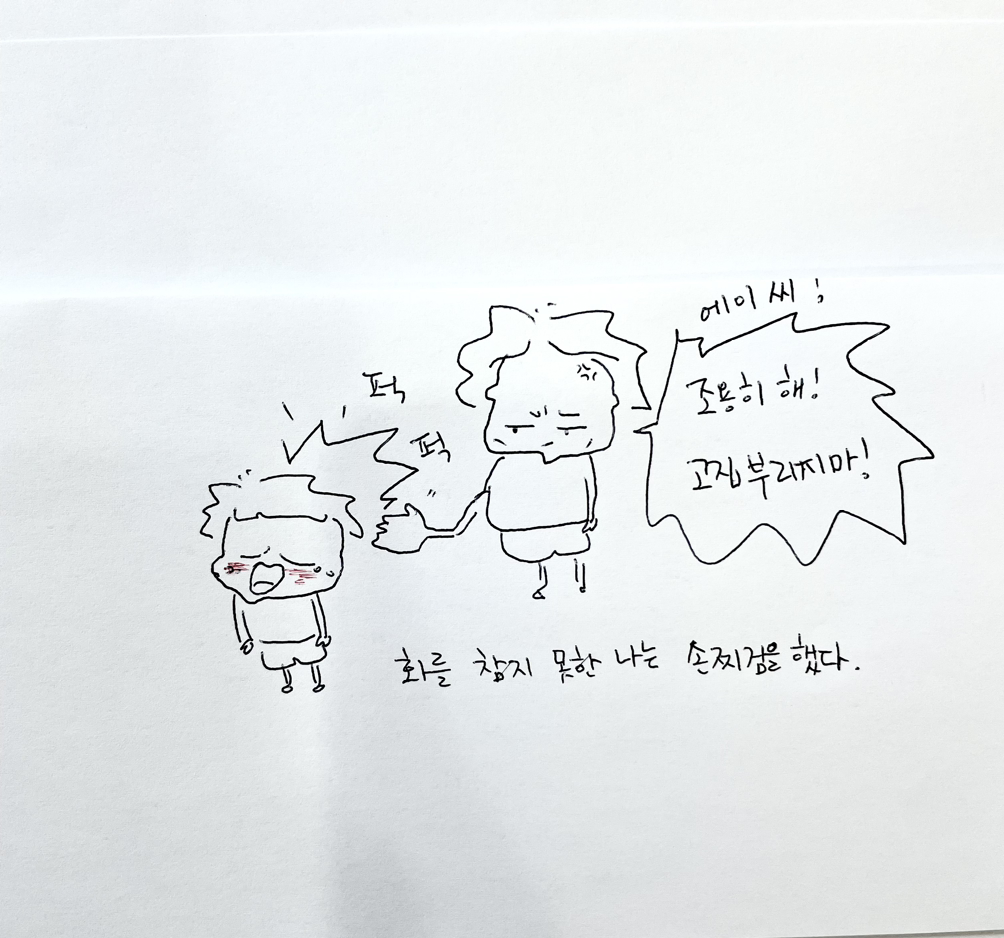 에이 씨!
조용히 해!
고집부리지마!
퍽
퍽
화를 참지 못한 나는 손찌검을 했다.